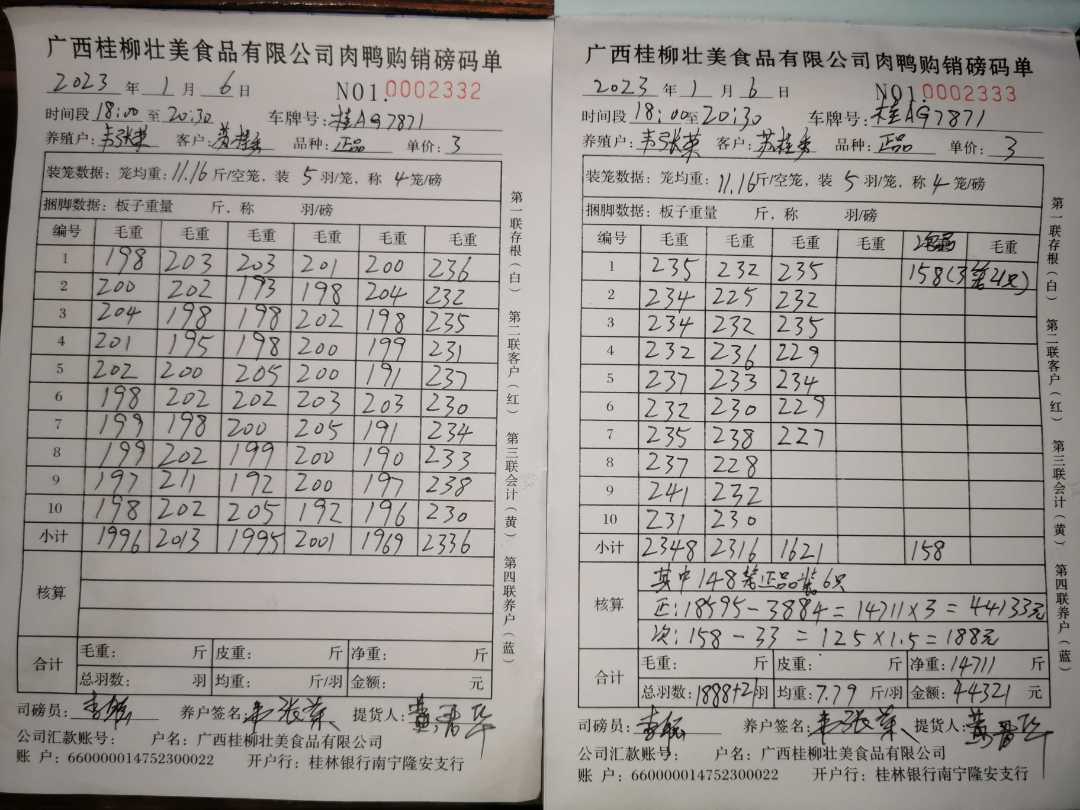 广西桂柳壮美食品有限公司肉鸭购销磅码单
2023 年 1 月 6 日 NO1.0002332
时间段 18:00 至 20:30 车牌号: 桂AG7871
养殖户: 韦张荣 客户: 苏桂 品种: 正品 单价: 3
装笼数据: 笼均重: 11.16 斤/空笼, 装 5 羽/笼, 称 4 笼/磅
捆脚数据: 板子重量 斤, 称 羽/磅
编号 毛重 毛重 毛重 毛重 毛重 毛重
1 198 203 203 201 200 236
2 200 202 193 198 204 232
3 204 198 198 202 198 235
4 201 195 198 200 199 231
5 202 200 205 200 191 237
6 198 202 202 203 203 230
7 199 198 200 205 191 234
8 199 202 199 200 190 233
9 197 211 192 200 197 238
10 198 202 205 192 196 230
小计 1996 2013 1995 2001 1969 2336
核算
合计 毛重: 斤 皮重: 斤 净重: 斤
总羽数: 羽 均重: 斤/羽 金额: 元
司磅员: 养户签名: 韦张荣 提货人:
公司汇款账号: 户名: 广西桂柳壮美食品有限公司
账 户: 660000014752300022 开户行: 桂林银行南宁隆安支行
第一联存根(白) 第二联客户(红) 第三联会计(黄) 第四联养户(蓝)
广西桂柳壮美食品有限公司肉鸭购销磅码单
2023 年 1 月 6 日 NO1.0002333
时间段 18:00 至 20:30 车牌号: 桂AG7871
养殖户: 韦张荣 客户: 苏桂 品种: 正品 单价: 3
装笼数据: 笼均重: 11.16 斤/空笼, 装 5 羽/笼, 称 4 笼/磅
捆脚数据: 板子重量 斤, 称 羽/磅
编号 毛重 毛重 毛重 毛重 毛重
1 235 232 235 158(3笼21只)
2 234 225 232
3 234 232 235
4 232 236 229
5 237 233 234
6 232 230 229
7 235 238 227
8 237 228
9 241 232
10 231 230
小计 2348 2316 1621 158
核算 其中148笼正品装6只
正: 18595-3884=14711×3=44133元
次: 158-33=125×1.5=188元
合计 毛重: 斤 皮重: 斤 净重: 14711 斤
总羽数: 1888+21 羽 均重: 7.79 斤/羽 金额: 44321 元
司磅员: 养户签名: 韦张荣 提货人:
公司汇款账号: 户名: 广西桂柳壮美食品有限公司
账 户: 660000014752300022 开户行: 桂林银行南宁隆安支行
第一联存根(白) 第二联客户(红) 第三联会计(黄) 第四联养户(蓝)